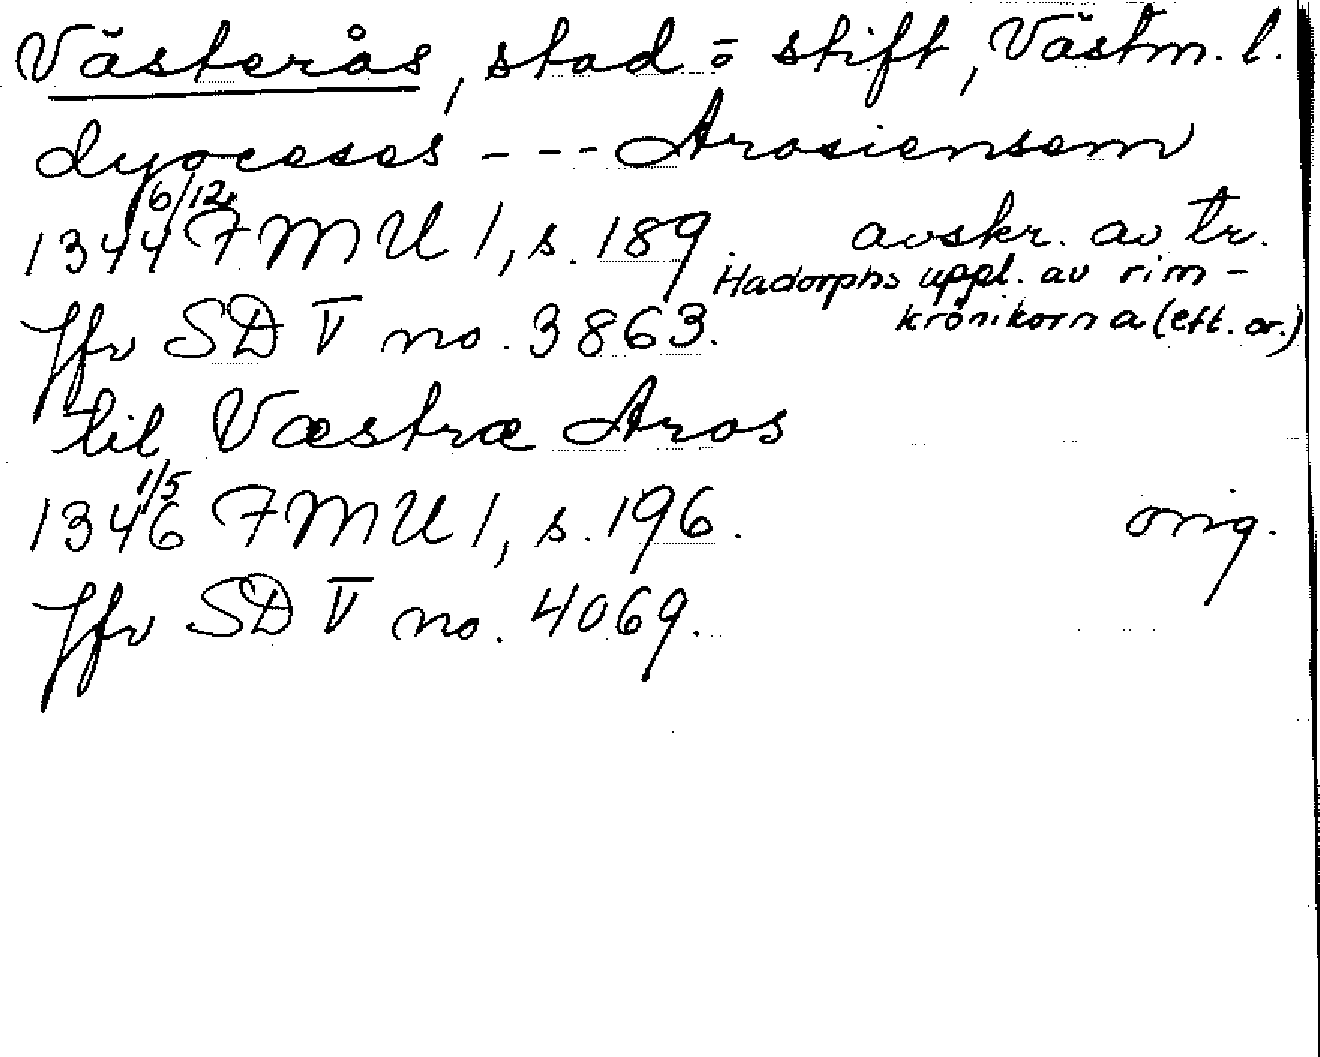 Västerås, stad o stift, Västm. l.
dyoceses --- Arosiensem
1344 6/12 FMU 1, s. 189. avskr. av tr.
Hadorphs uppl. av rim-
krönikorna (eft. or.)
Jfr SD V no. 3863.
til Væstræ Aros
1346 1/5 FMU 1, s. 196. orig.
Jfr SD V no. 4069.